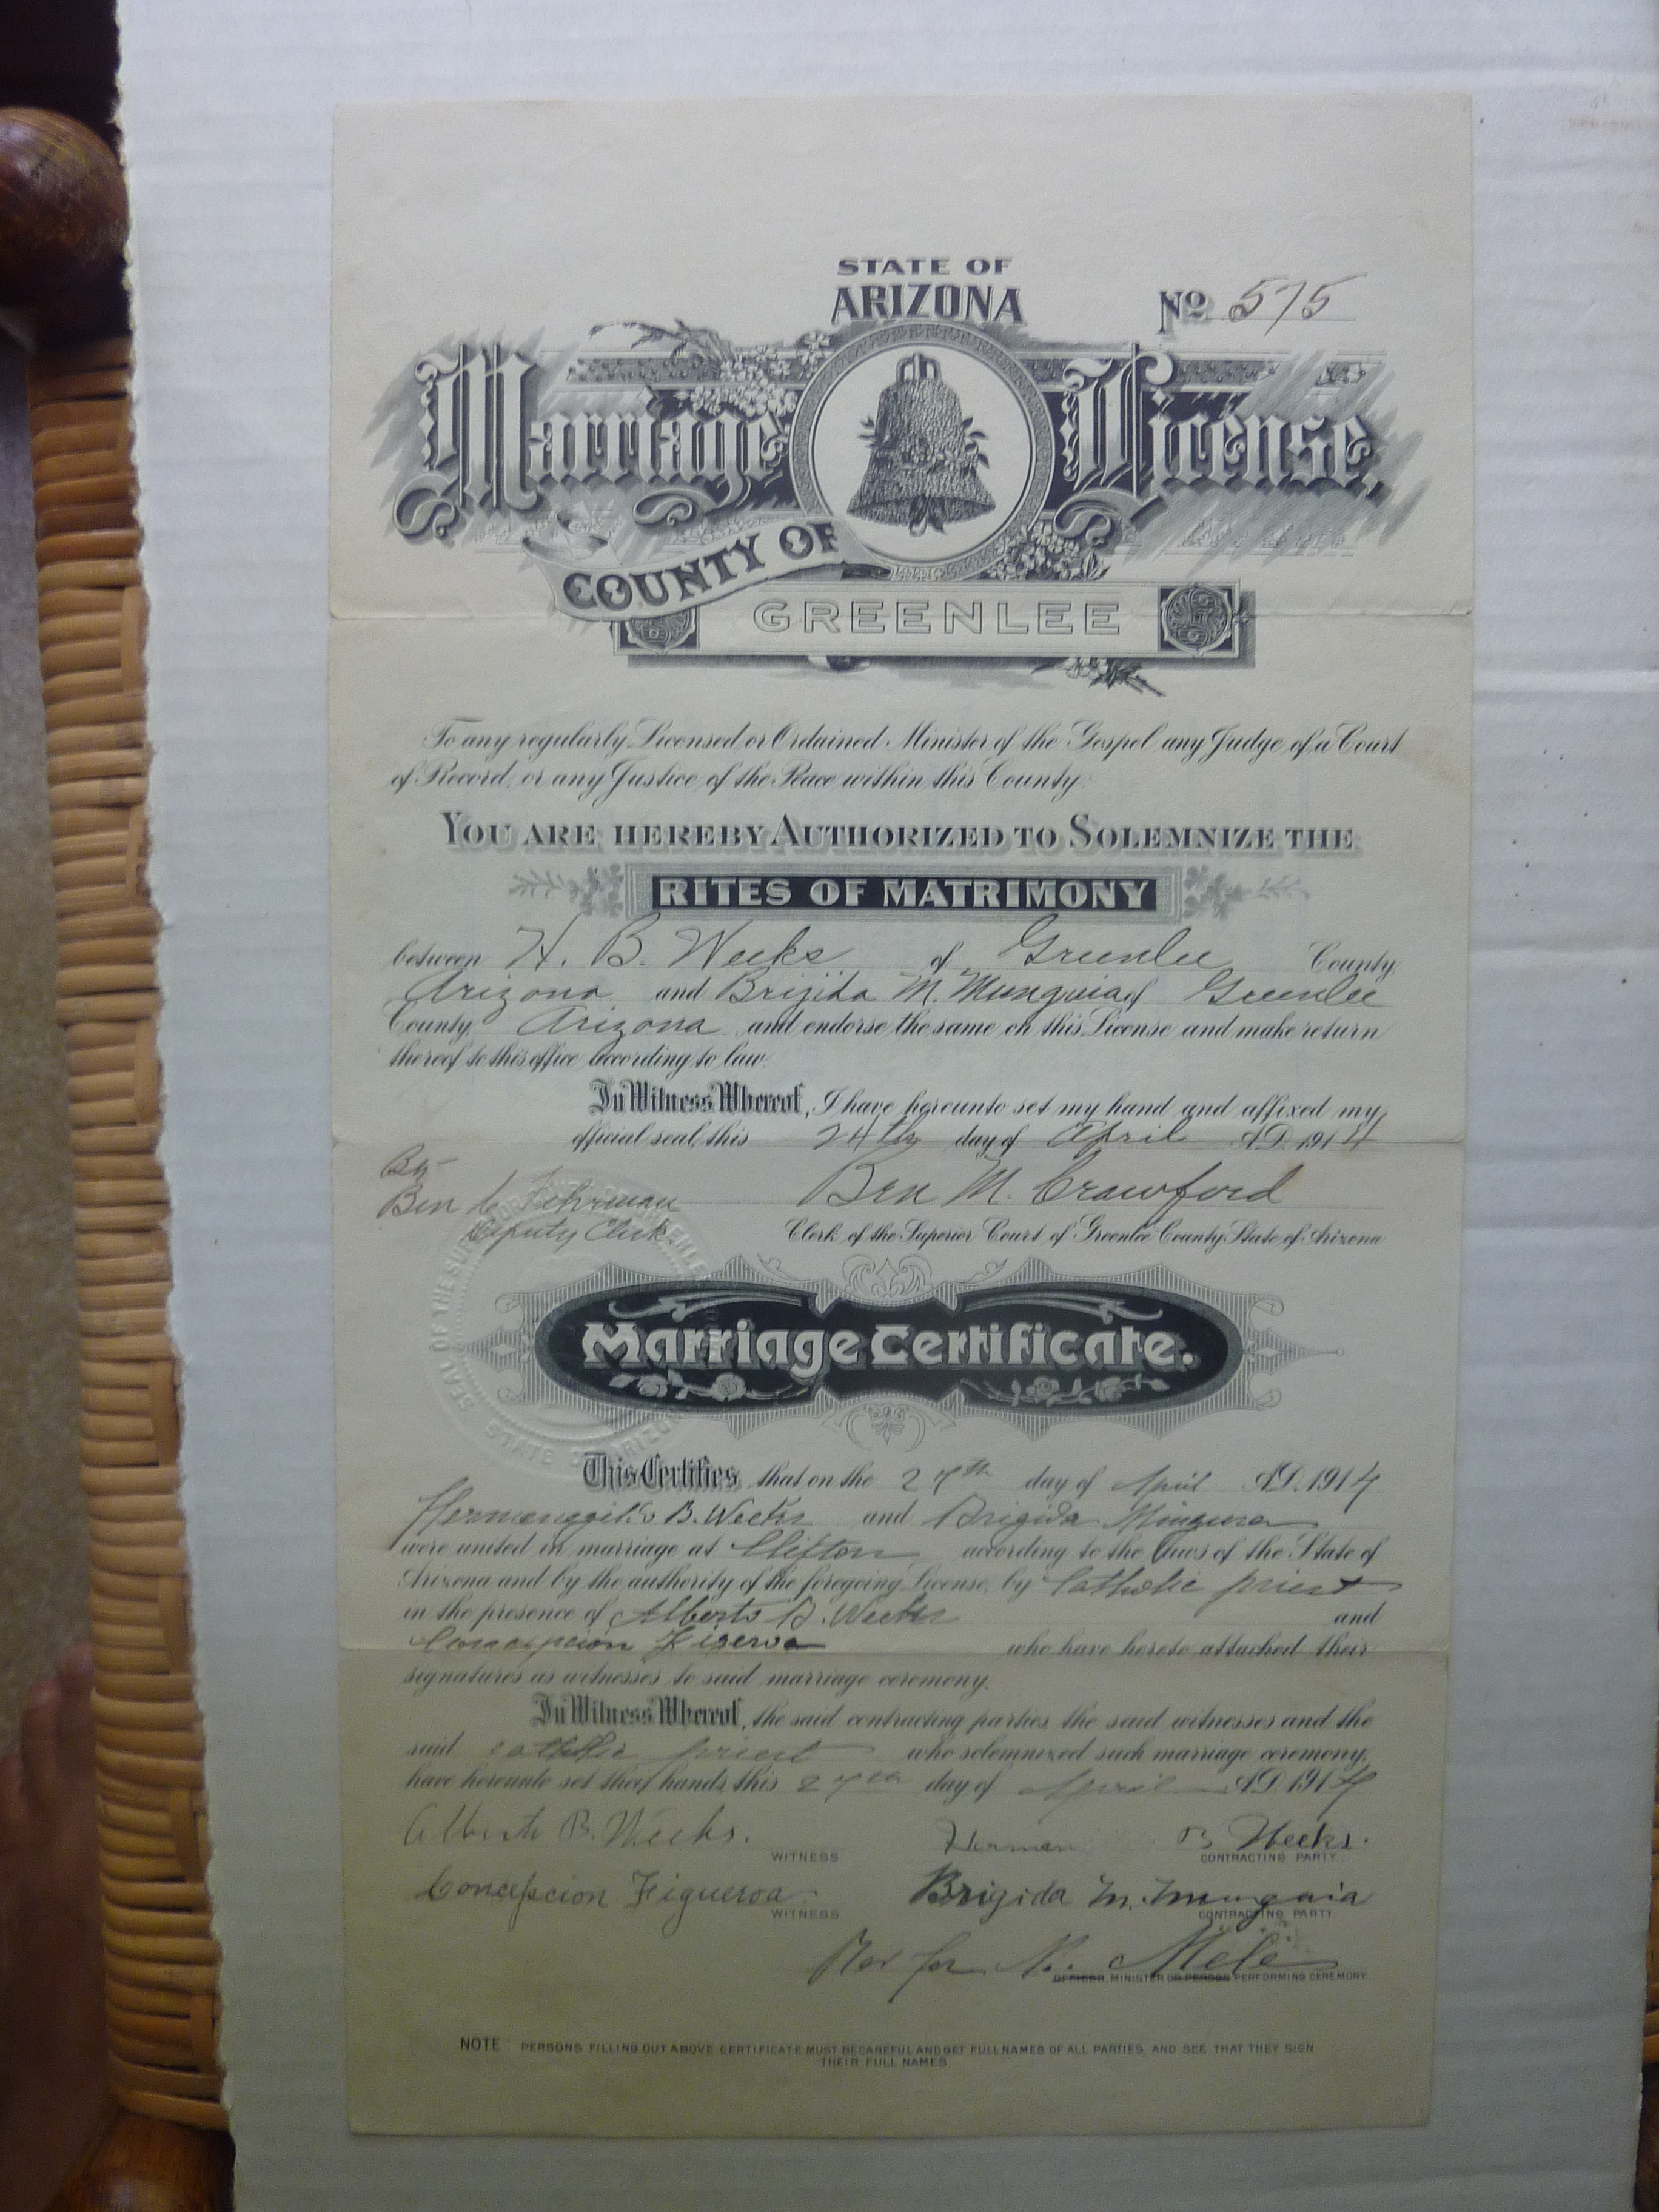 STATE OF
ARIZONA
No 575
Marriage License,
COUNTY OF
GREENLEE
To any regularly Licensed or Ordained Minister of the Gospel any Judge of a Court
of Record, or any Justice of the Peace within this County:
YOU ARE HEREBY AUTHORIZED TO SOLEMNIZE THE
RITES OF MATRIMONY
between H. B. Weeks of Greenlee County,
Arizona and Brijida M. Munguia of Greenlee
County, Arizona and endorse the same on this License and make return
thereof to this office according to law.
In Witness Whereof, I have hereunto set my hand and affixed my
official seal, this 24th day of April A.D. 1914
By
Ben M. Crawford
Ben Fehrman
Deputy Clerk
Clerk of the Superior Court of Greenlee County, State of Arizona
SEAL OF THE SUPERIOR COURT GREENLEE STATE OF ARIZONA
Marriage Certificate.
This Certifies, that on the 27th day of April A.D. 1914
B. Weeks and Brigida
were united in marriage at Clifton according to the Laws of the State of
Arizona and by the authority of the foregoing License, by Catholic priest
in the presence of Alberto B. Weeks and
Concepcion Figeroa who have hereto attached their
signatures as witnesses to said marriage ceremony.
In Witness Whereof, the said contracting parties, the said witnesses and the
said catholic priest who solemnized such marriage ceremony,
have hereunto set their hands, this 27th day of April A.D. 1914
Alberto B. Weeks.
WITNESS
Herman B Weeks.
CONTRACTING PARTY
Concepcion Figueroa.
WITNESS
Brigida M. Munguia
CONTRACTING PARTY
Mele
OFFICER, MINISTER OR PERSON PERFORMING CEREMONY.
NOTE: PERSONS FILLING OUT ABOVE CERTIFICATE MUST BE CAREFUL AND GET FULL NAMES OF ALL PARTIES, AND SEE THAT THEY SIGN
THEIR FULL NAMES.